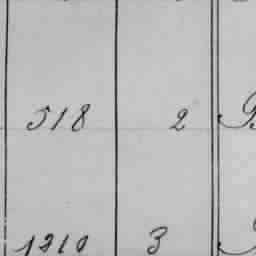 518 2
1210 3